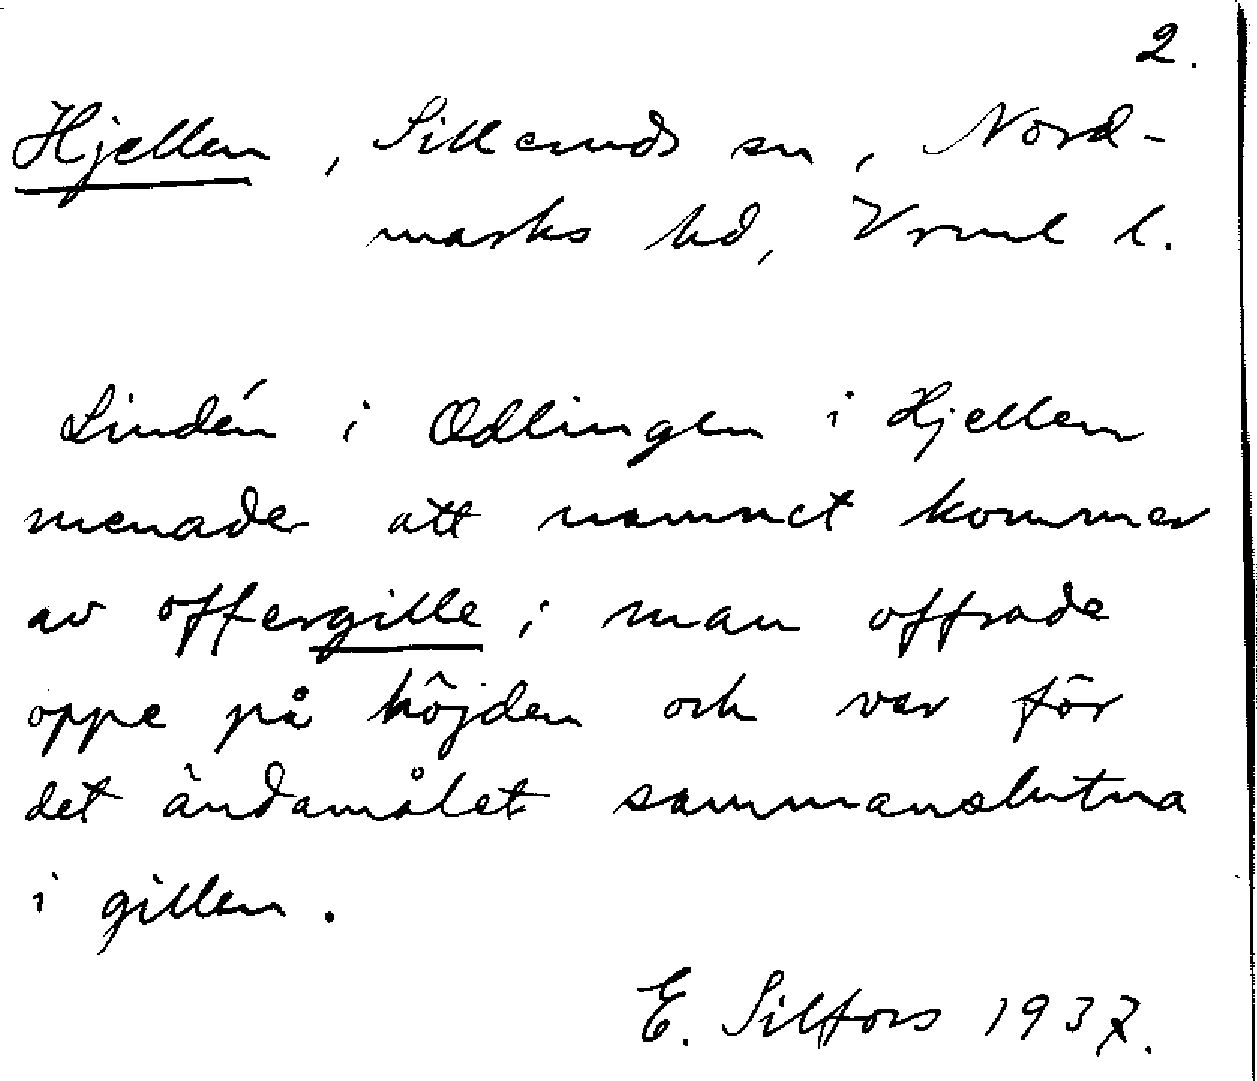 2.
Hjellen, Silleruds sn, Nord-
marks hd, Vrml l.
Lindén i Ødlingen i Hjellen
menade att namnet kommer
av offergille; man offrade
oppe på höjden och var för
det ändamålet sammanslutna
i gillen.
E. Silfors 1937.